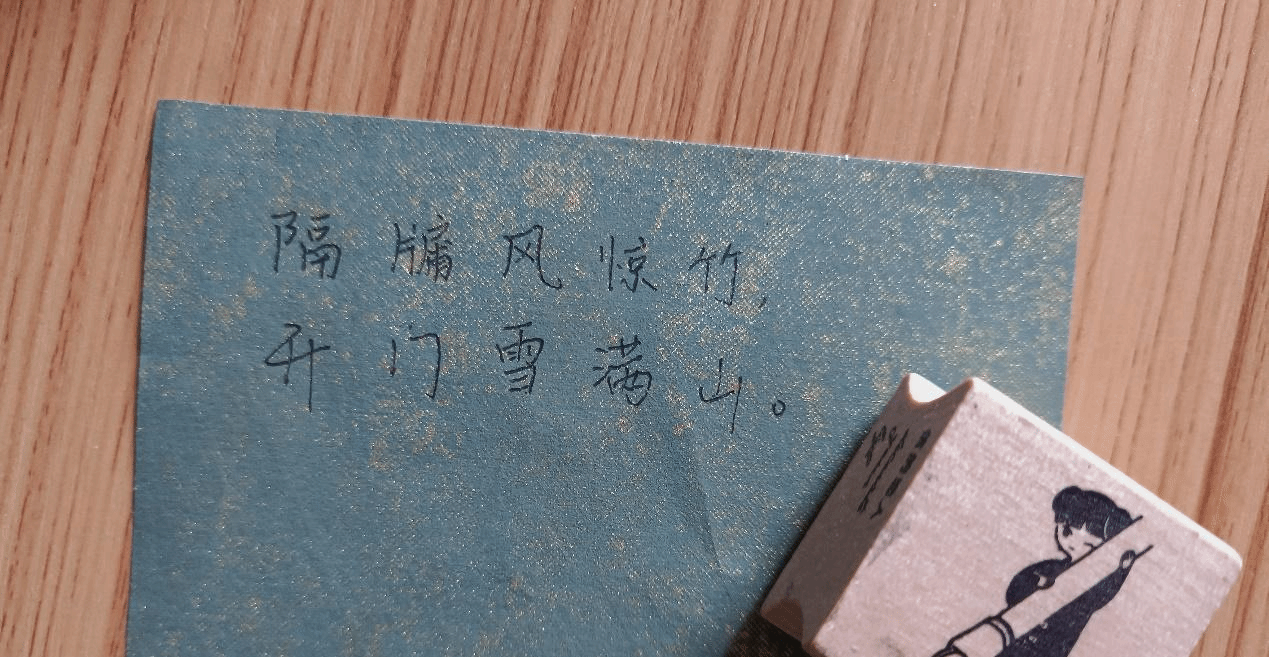 隔牖风惊竹，
开门雪满山。